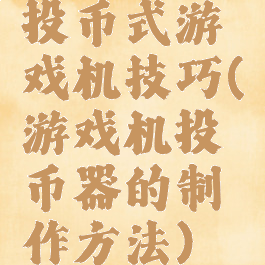 投币式游
戏机技巧(
游戏机投
币器的制
作方法)